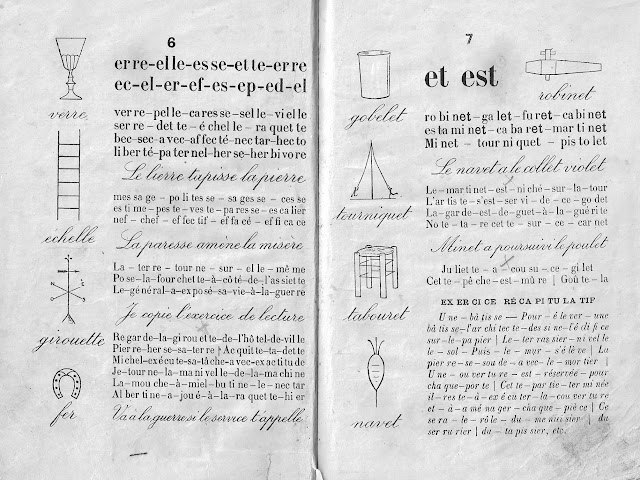 6
er re-el le-es se-et te-er re
ec-el-er-ef-es-ep-ed-el
verre
ver re-pel le-ca res se-sel le-vi el le
ser re-det te-é chel le-ra quet te
bec-sec-a vec-af fec té-nec tar-hec to
li ber té-pa ter nel-her se-her bi vo re
Le lierre tapisse la pierre
échelle
mes sa ge-po li tes se-sa ges se-ces se
es ti me-pes te-ves te-pa res se-es ca lier
nef-chef-ef fec tif-ef fa cé-ef fi ca ce
La paresse amène la misère
La-ter re-tour ne-sur-el le-mê me
Po se-la-four chet te-à-cô té-de-l'as siet te
Le-gé né ral-a-ex po sé-sa vie-à-la-guer re
girouette
Je copie l'exercice de lecture
Re gar de-la-gi rou et te-de-l'hô tel-de-vil le
Pier re-her se-sa-ter re-Ac quit te-ta-det te
Mi chel-ex é cu te-sa-tâ che-a vec-ex ac ti tu de
Je-tour ne-la-ma ni vel le-de-la-ma chi ne
La-mou che-à-miel-bu ti ne-le-nec tar
Al ber ti ne-a-jou é-à-la-ra quet te-hi er
fer
Va à la guerre si le service t'appelle
7
et est
gobelet
robinet
ro bi net-ga let-fu ret-ca bi net
es ta mi net-ca ba ret-mar ti net
Mi net-tour ni quet-pis to let
Le navet a le collet violet
tourniquet
Le-mar ti net-est-ni ché-sur-la-tour
L'ar tis te-s'est-ser vi-de-ce-go det
La-gar de-est-de-guet-à-la-gué ri te
No te-ta-re cet te-sur-ce-car net
Minet a poursuivi le poulet
tabouret
Ju liet te-a-cou su-ce-gi let
Cet te-pê che-est-mû re | Goû te-la
EX ER CI CE RÉ CA PI TU LA TIF
U ne-bâ tis se-Pour-é le ver-une
bâ tis se-l'ar chi tec te-des si ne-l'é di fi ce
sur-le-pa pier | Le-ter ras sier-ni vel le
le-sol-Puis-le-mur-s'é lè ve | La
pier re-se-sou de-a vec-le-mor tier |
U ne-ou ver tu re-est-réservée-pour
cha que-por te | Cet te-par tie-ter mi née
il-res te-à-ex é cu ter-la-cou ver tu re
et-à-a mé na ger-cha que-piè ce | Ce
se ra-le-rô le-du-me nui sier-du
ser ru rier | du-ta pis sier, etc.
navet